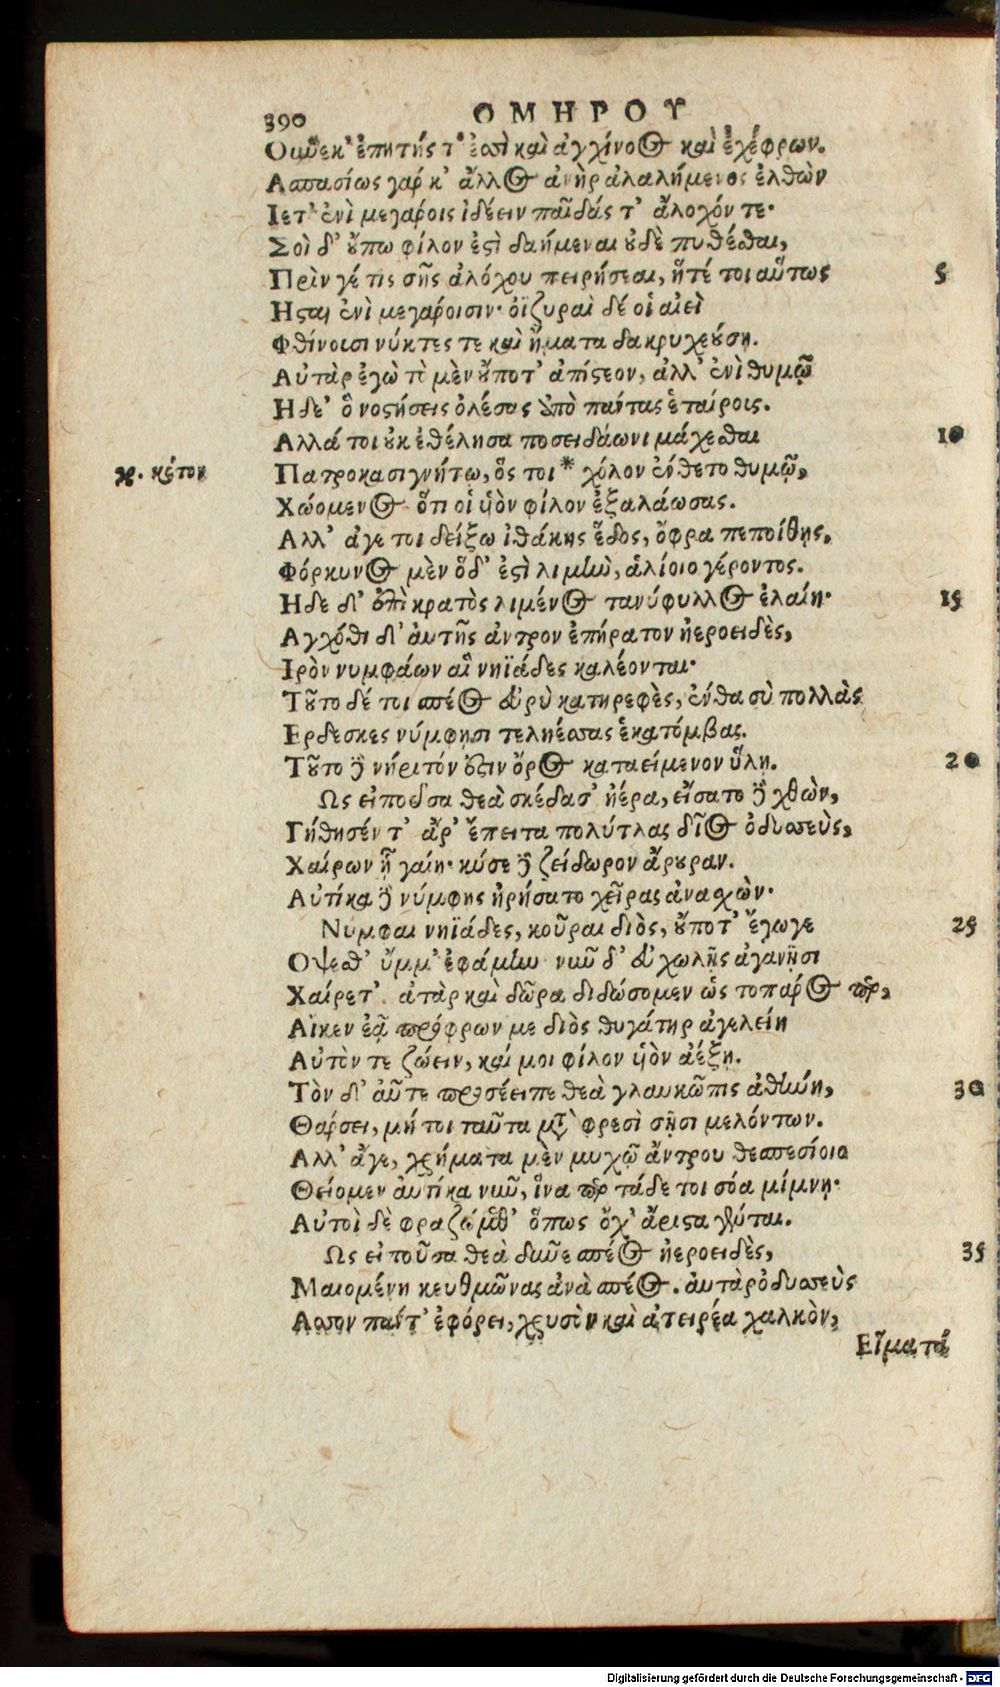 390 ΟΜΗΡΟΥ
Οὕνεκ' ἐπητής τ' ἐσσὶ καὶ ἀγχίνοος καὶ ἐχέφρων.
Ασπασίως γάρ κ' ἄλλος ἀνὴρ ἀλαλήμενος ἐλθὼν
Ιετ' ἐνὶ μεγάροις ἰδέειν παῖδάς τ' ἄλοχόν τε·
Σοὶ δ' οὔπω φίλον ἐστὶ δαήμεναι οὐδὲ πυθέσθαι,
Πρὶν γέ τις σῆς ἀλόχου πειρήσεαι, ἥτέ τοι αὔτως 5
Ησται ἐνὶ μεγάροισιν· ὀϊζυραὶ δέ οἱ αἰεὶ
Φθίνουσι νύκτες τε καὶ ἤματα δακρυχεούση.
Αὐτὰρ ἐγὼ τὸ μὲν οὔποτ' ἀπίστεον, ἀλλ' ἐνὶ θυμῷ
Ηδε' ὃ νοστήσεις ὀλέσας ἀπὸ πάντας ἑταίροις.
Αλλά τοι οὐκ ἐθέλησα ποσειδάωνι μάχεσθαι 10
γρ. κότον Πατροκασιγνήτῳ, ὅς τοι * χόλον ἔνθετο θυμῷ,
Χώομενος ὅτι οἱ υἱὸν φίλον ἐξαλάωσας.
Αλλ' ἄγε τοι δείξω ἰθάκης ἕδος, ὄφρα πεποίθῃς.
Φόρκυνος μὲν ὅδ' ἐστὶ λιμὴν, ἁλίοιο γέροντος.
Ηδε δ' ἐπὶ κρατὸς λιμένος τανύφυλλος ἐλαίη· 15
Αγχόθι δ' αὐτῆς ἄντρον ἐπήρατον ἠεροειδὲς,
Ιρὸν νυμφάων αἳ νηϊάδες καλέονται·
Τοῦτο δέ τοι σπέος εὐρὺ κατηρεφὲς, ἔνθα σὺ πολλὰς
Ερδεσκες νύμφησι τεληέσσας ἑκατόμβας.
Τοῦτο δὲ νήριτόν ἐστιν ὄρος καταείμενον ὕλη. 20
Ως εἰποῦσα θεὰ σκέδασ' ἠέρα, εἴσατο δὲ χθὼν,
Γήθησέν τ' ἄρ' ἔπειτα πολύτλας δῖος ὀδυσσεὺς,
Χαίρων ᾗ γαίη· κύσε δὲ ζείδωρον ἄρουραν.
Αὐτίκα δὲ νύμφης ἠρήσατο χεῖρας ἀνασχών·
Νύμφαι νηϊάδες, κοῦραι διὸς, οὔποτ' ἔγωγε 25
Οψεσθ' ὔμμ' ἐφάμην· νῦν δ' εὐχωλῇς ἀγανῇσι
Χαίρετ'. ἀτὰρ καὶ δῶρα διδώσομεν ὡς τοπάρος περ,
Αἴκεν ἐᾷ πρόφρων με διὸς θυγάτηρ ἀγελείη
Αὐτόν τε ζώειν, καί μοι φίλον υἱὸν ἀέξη.
Τὸν δ' αὖτε προσέειπε θεὰ γλαυκῶπις ἀθήνη, 30
Θάρσει, μή τοι ταῦτα μετὰ φρεσὶ σῇσι μελόντων.
Αλλ' ἄγε, χρήματα μὲν μυχῷ ἄντρου θεσπεσίοιο
Θείομεν αὐτίκα νῦν, ἵνα περ τάδε τοι σόα μίμνῃ·
Αὐτοὶ δὲ φραζώμεθ' ὅπως ὄχ' ἄριστα γένηται.
Ως εἰποῦσα θεὰ δῦνε σπέος ἠεροειδὲς, 35
Μαιομένη κευθμῶνας ἀνὰ σπέος. αὐτὰρ ὀδυσσεὺς
Ασσον πάντ' ἐφόρει, χρυσὸν καὶ ἀτειρέα χαλκὸν,
Εἵματά
Digitalisierung gefördert durch die Deutsche Forschungsgemeinschaft - DFG